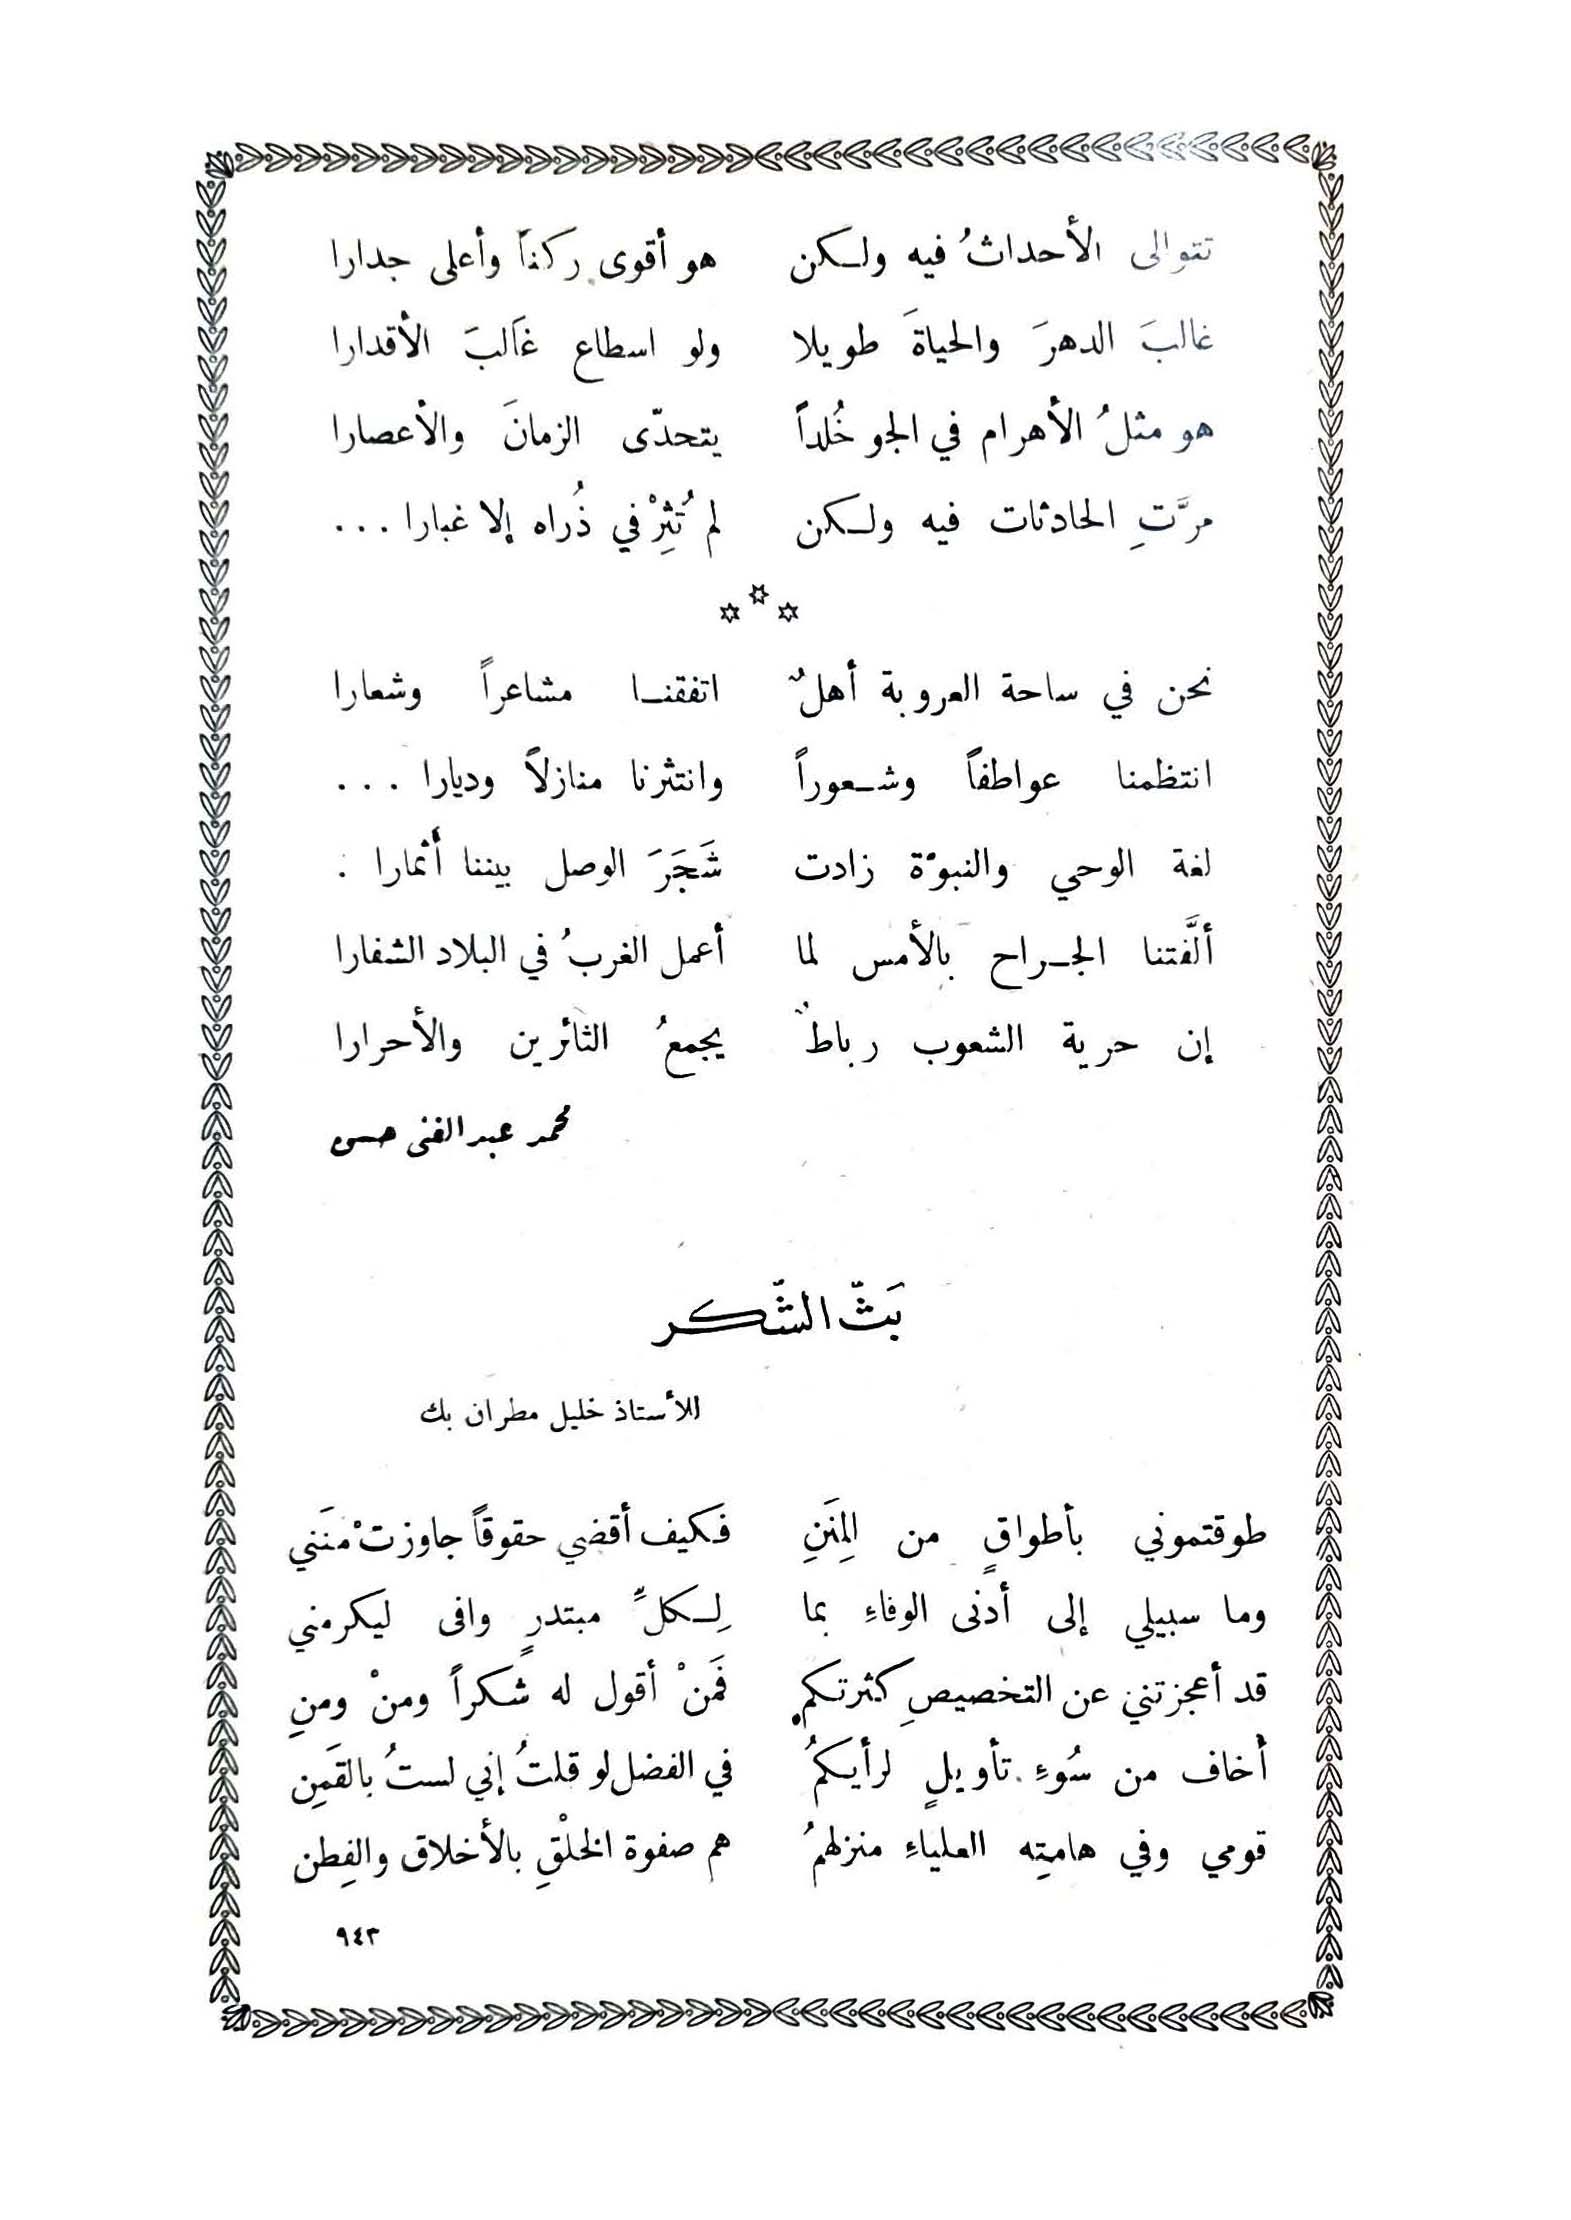 تتوالى الأحداثُ فيه ولكن هو أقوى ركناً وأعلى جدارا
غالبَ الدهرَ والحياةَ طويلا ولو اسطاع غَالبَ الأقدارا
هو مثلُ الأهرام في الجو خُلداً يتحدّى الزمانَ والأعصارا
مرَّتِ الحادثات فيه ولكن لم تُثِرْ في ذُراه إلا غبارا ...
نحن في ساحة العروبة أهلٌ اتفقنا مشاعراً وشعارا
انتظمنا عواطفاً وشعوراً وانتثرنا منازلاً وديارا ...
لغة الوحي والنبوّة زادت شَجَرَ الوصل بيننا أثمارا .
ألَّفتنا الجراح بالأمس لما أعمل الغربُ في البلاد الشفارا
إن حرية الشعوب رباطٌ يجمعُ الثائرين والأحرارا
محمد عبد الغنى حسن
بَثّ الشّكر
للأستاذ خليل مطران بك
طوقتموني بأطواقٍ من المِنَنِ فكيف أقضي حقوقاً جاوزتْ مُنَني
وما سبيلي إلى أدنى الوفاءِ بما لِكلِّ مبتدرٍ وافى ليَكرمني
قد أعجزتني عن التخصيصِ كثرتكم فَمَنْ أقول له شكراً ومنْ ومنِ
أخاف من سُوءِ تأويلٍ لرأيكمُ في الفضل لو قلتُ إني لستُ بالقَمِن
قومي وفي هامتِه العلياءِ منزلهمُ هم صفوة الخلْقِ بالأخلاق والفِطن
٩٤٣